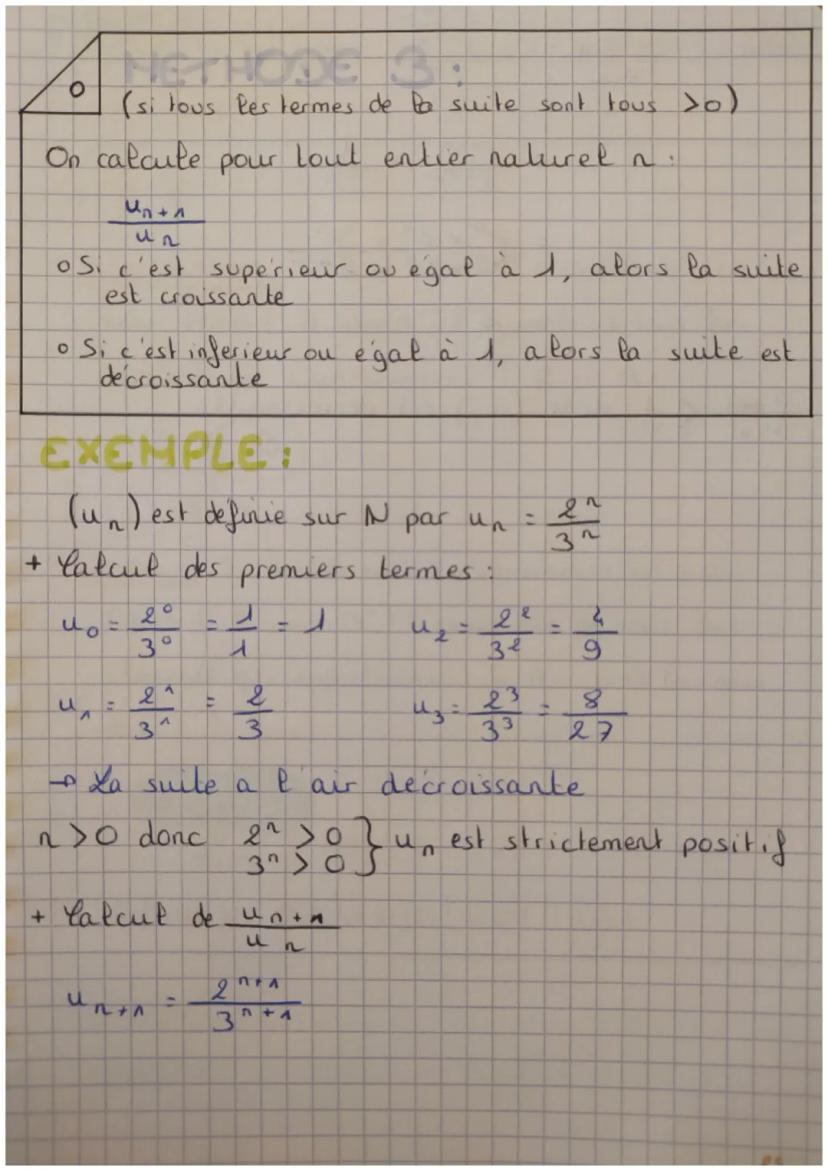 METHODE 3 :
(si tous les termes de la suite sont tous >0)
On calcule pour tout entier naturel n :
u_{n+1}
u_n
o Si c'est supérieur ou égal à 1, alors la suite
est croissante
o Si c'est inferieur ou égal à 1, alors la suite est
décroissante
EXEMPLE :
(u_n) est définie sur ℕ par u_n = 2^n/3^n
+ Calcul des premiers termes :
u_0 = 2^0/3^0 = 1/1 = 1   u_2 = 2^2/3^2 = 4/9
u_1 = 2^1/3^1 = 2/3   u_3 = 2^3/3^3 = 8/27
→ La suite a l'air décroissante
n>0 donc 2^n >0 } u_n est strictement positif
3^n > 0
+ Calcul de u_{n+1}/u_n
u_{n+1} = 2^{n+1}/3^{n+1}